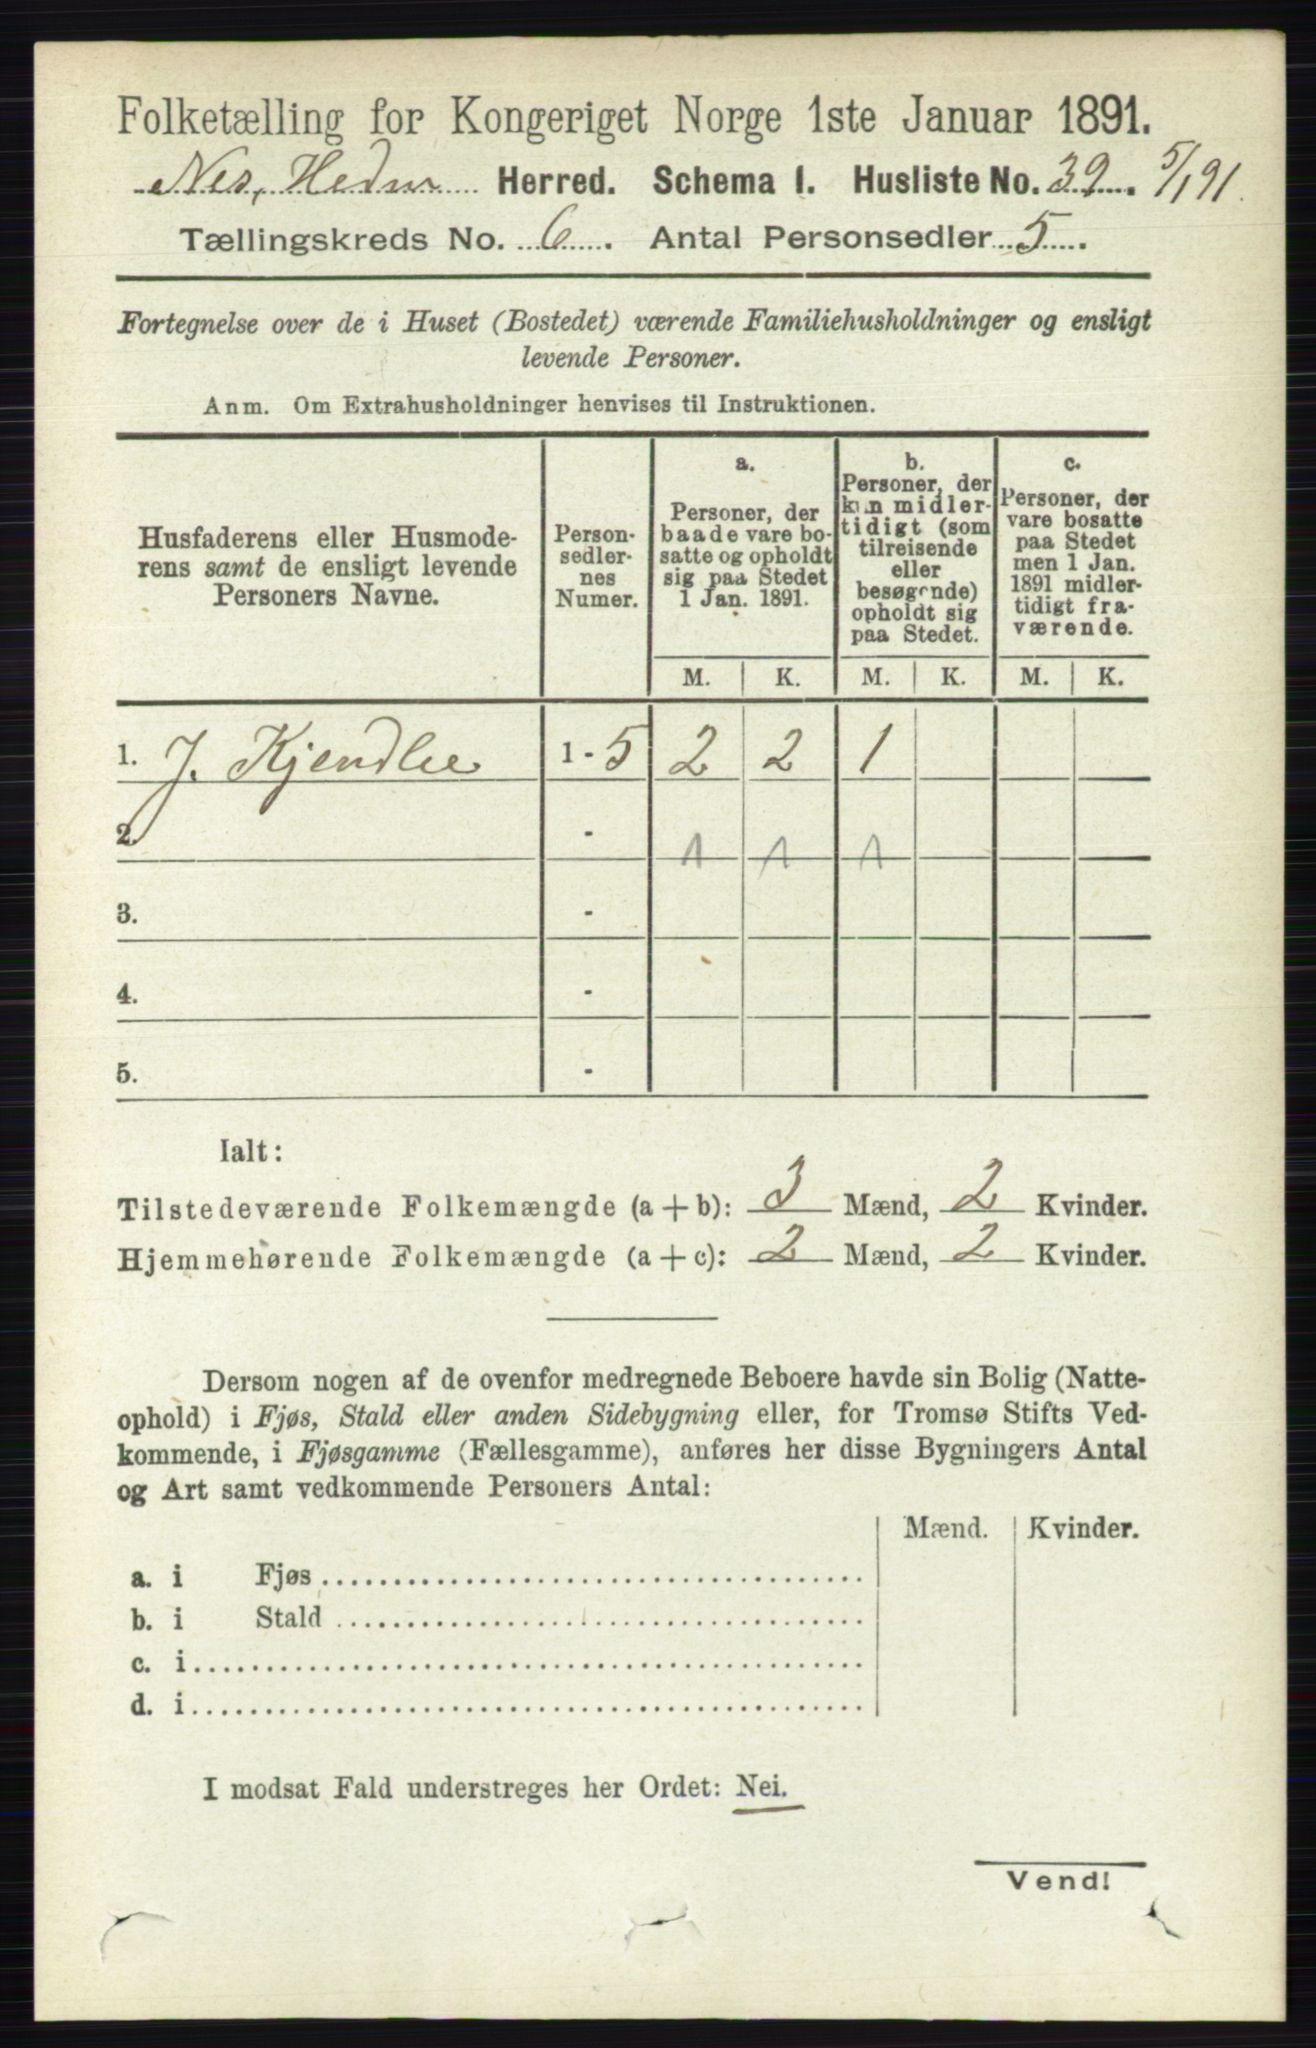 Folketælling for Kongeriget Norge 1ste Januar 1891.
Nes, Hedm Herred. Schema I. Husliste No. 39. 5/1 91.
Tællingskreds No. 6. Antal Personsedler 5.
Fortegnelse over de i Huset (Bostedet) værende Familiehusholdninger og ensligt
levende Personer.
Anm. Om Extrahusholdninger henvises til Instruktionen.
Husfaderens eller Husmode-
rens samt de ensligt levende
Personers Navne.
Person-
sedler-
nes
Numer.
a.
Personer, der
baade vare bo-
satte og opholdt
sig paa Stedet
1 Jan. 1891.
b.
Personer, der
kun midler-
tidigt (som
tilreisende
eller
besøgende)
opholdt sig
paa Stedet.
c.
Personer, der
vare bosatte
paa Stedet
men 1 Jan.
1891 midler-
tidigt fra-
værende.
M. K. M. K. M. K.
1. J. Kjendlie 1 - 5 2 2 1
2. - 1 1 1
3. -
4. -
5. -
Ialt:
Tilstedeværende Folkemængde (a + b): 3 Mænd, 2 Kvinder.
Hjemmehørende Folkemængde (a + c): 2 Mænd, 2 Kvinder.
Dersom nogen af de ovenfor medregnede Beboere havde sin Bolig (Natte-
ophold) i Fjøs, Stald eller anden Sidebygning eller, for Tromsø Stifts Ved-
kommende, i Fjøsgamme (Fællesgamme), anføres her disse Bygningers Antal
og Art samt vedkommende Personers Antal:
Mænd. Kvinder.
a. i Fjøs
b. i Stald
c. i
d. i
I modsat Fald understreges her Ordet: Nei.
Vend!